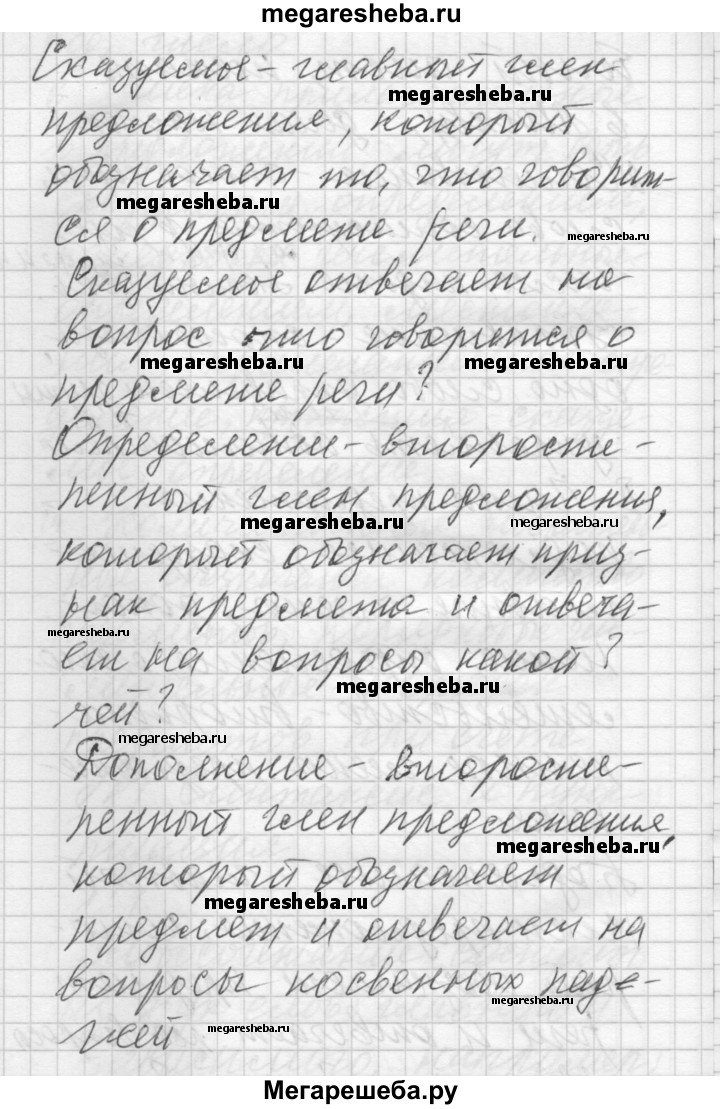 megaresheba.ru
Сказуемое - главный член
megaresheba.ru
предложения, который
обозначает то, что говорит-
megaresheba.ru
ся о предмете речи.
megaresheba.ru
Сказуемое отвечает на
вопрос что говорится о
megaresheba.ru megaresheba.ru
предмете речи?
Определение - второсте-
пенный член предложения,
megaresheba.ru megaresheba.ru
который обозначает приз-
нак предмета и отвеча-
megaresheba.ru
ет на вопросы какой?
megaresheba.ru
чей?
megaresheba.ru
Дополнение - второсте-
пенный член предложения,
megaresheba.ru
который обозначает
megaresheba.ru
предмет и отвечает на
вопросы косвенных паде-
megaresheba.ru
жей
megaresheba.ru
Мегарешеба.ру